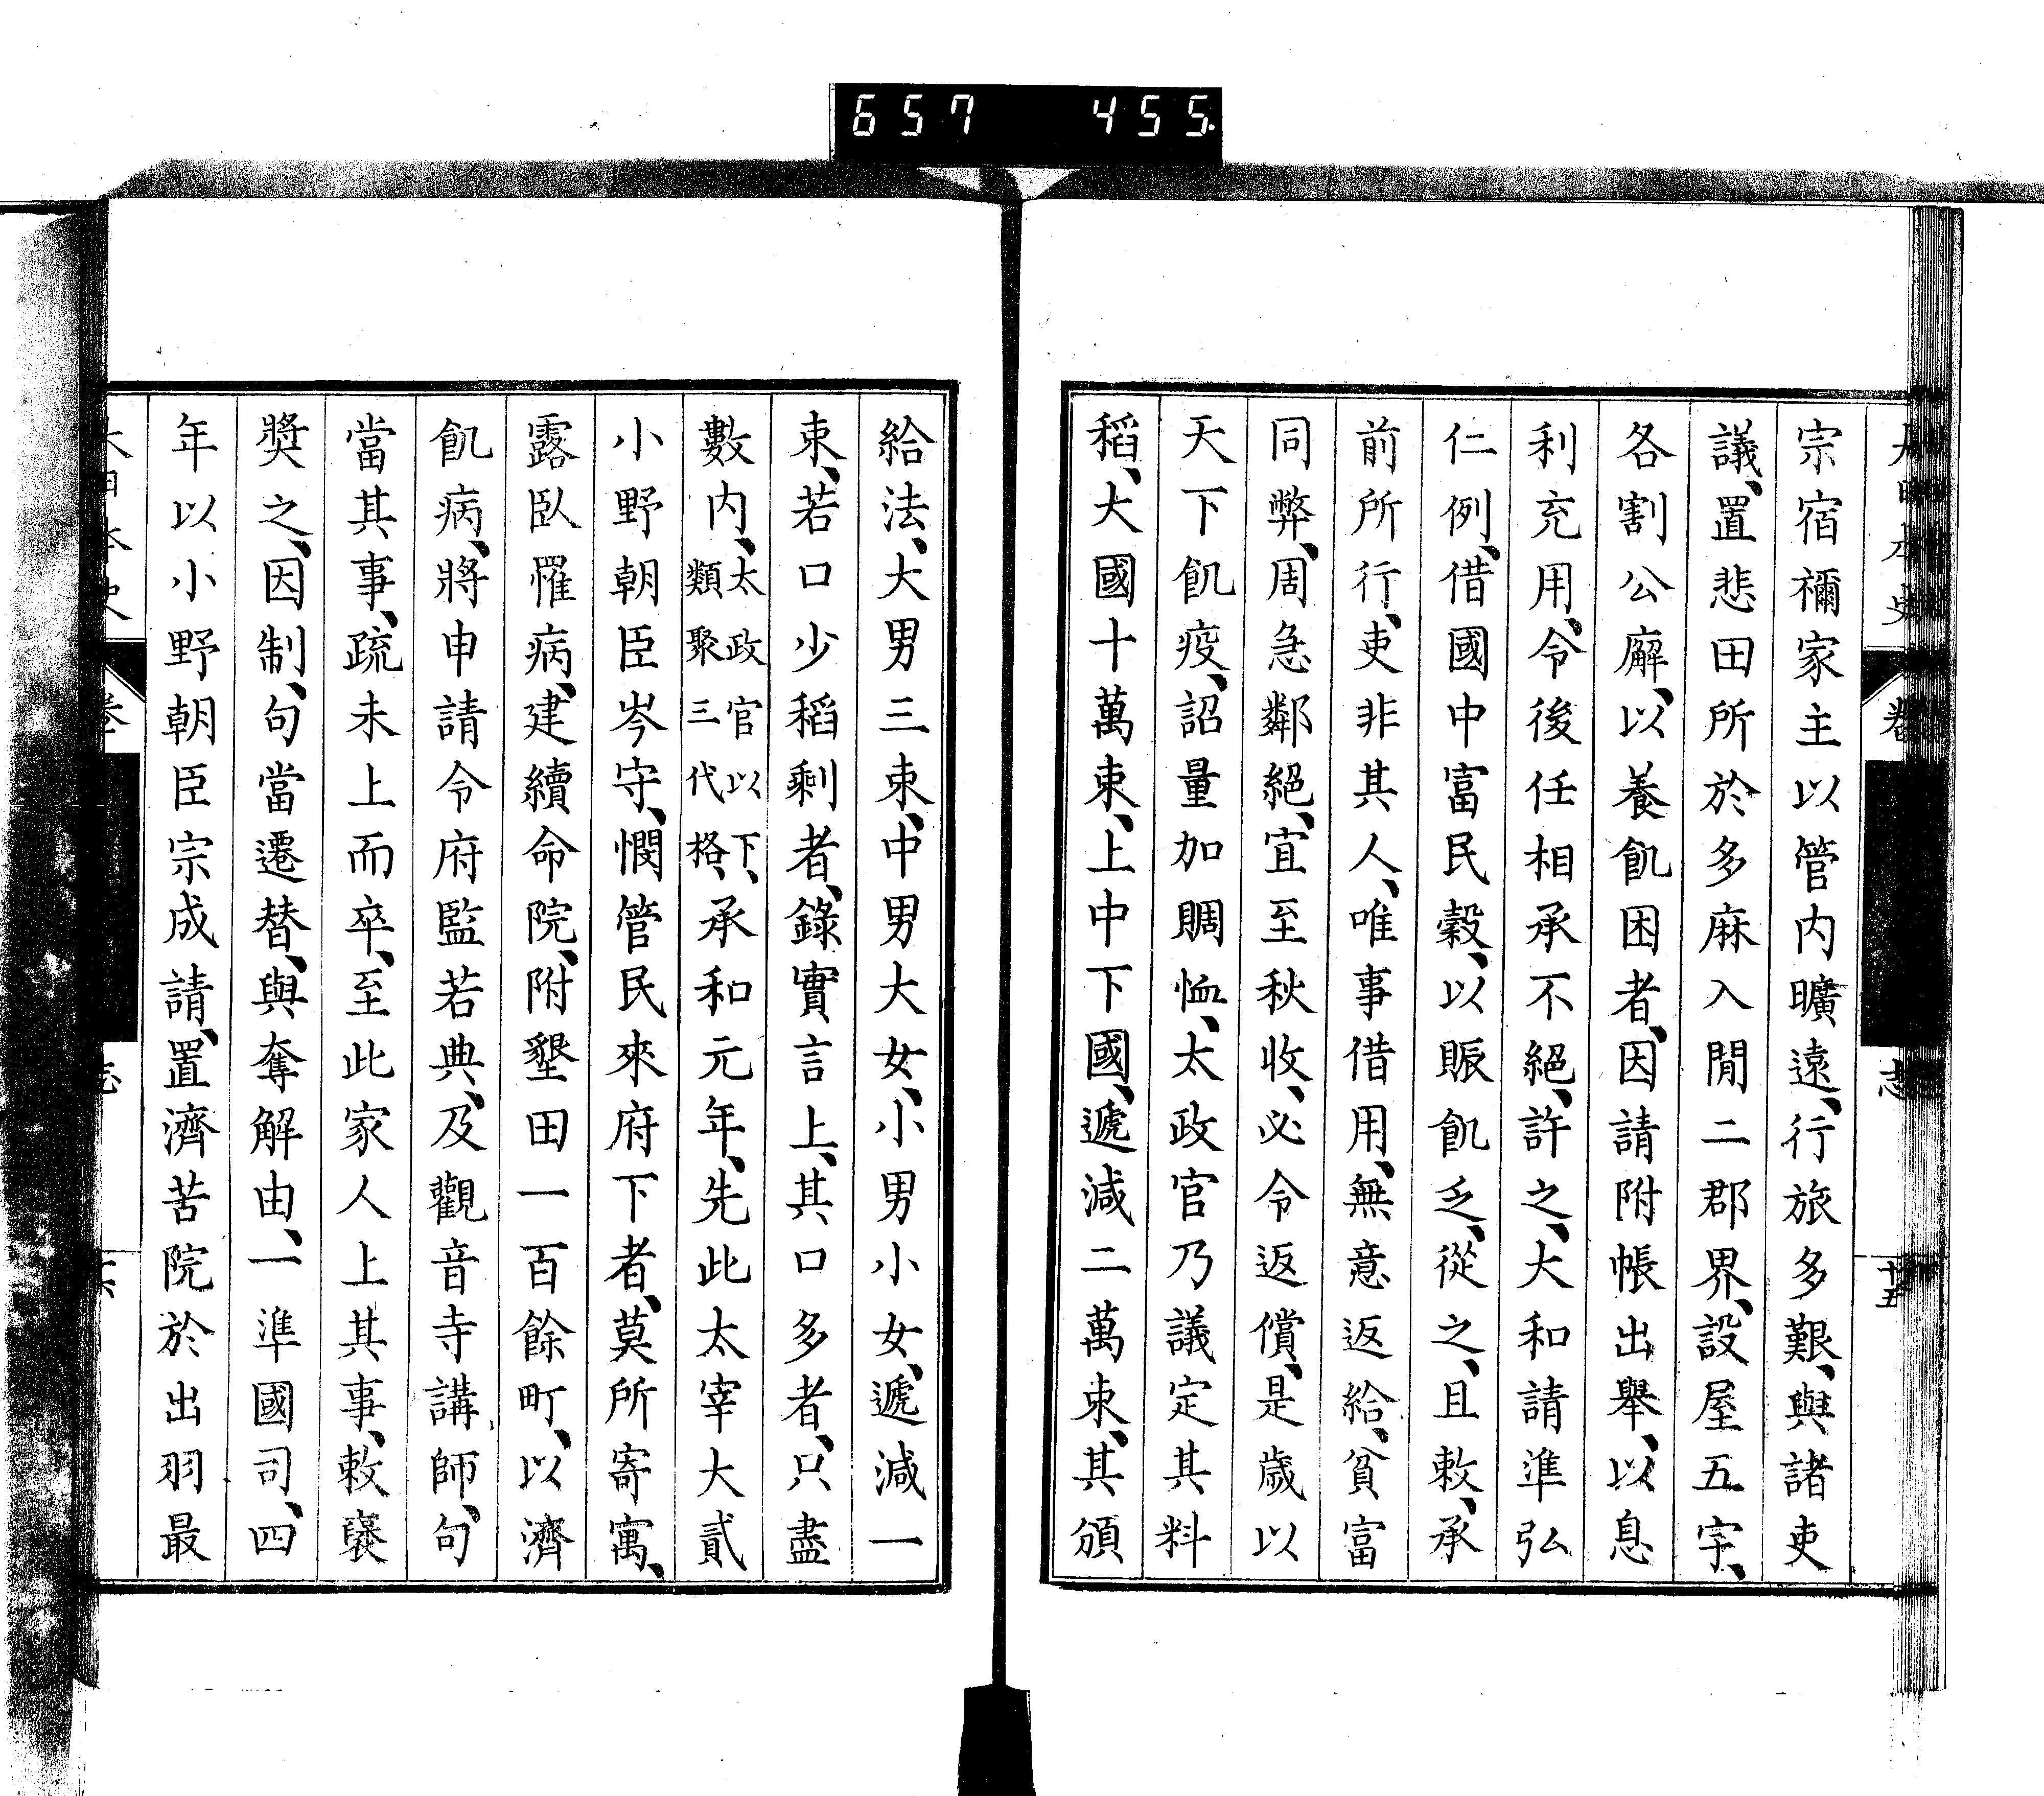 657 455
宗宿禰家主以管内曠遠、行旅多艱、與諸吏
議、置悲田所於多麻入閒二郡界、設屋五宇、
各割公廨、以養飢困者、因請附帳出舉、以息
利充用、令後任相承不絕、許之、大和請準弘
仁例、借國中富民穀、以賑飢乏、從之、且敕、承
前所行、吏非其人、唯事借用、無意返給、貧富
同弊、周急鄰絕、宜至秋收、必令返償、是歲以
天下飢疫、詔量加賙恤、太政官乃議定其料
稻、大國十萬束、上中下國、遞減二萬束、其頒
給法、大男三束、中男大女、小男小女、遞減一
束、若口少稻剩者、錄實言上、其口多者、只盡
數内、太政官以下、類聚三代格、承和元年、先此太宰大貳
小野朝臣岑守、憫管民來府下者、莫所寄寓、
露臥罹病、建續命院、附墾田一百餘町、以濟
飢病、將申請令府監若典、及觀音寺講師、句
當其事、疏未上而卒、至此家人上其事、敕襃
獎之、因制、句當遷替、與奪解由、一準國司、四
年以小野朝臣宗成請、置濟苦院於出羽最